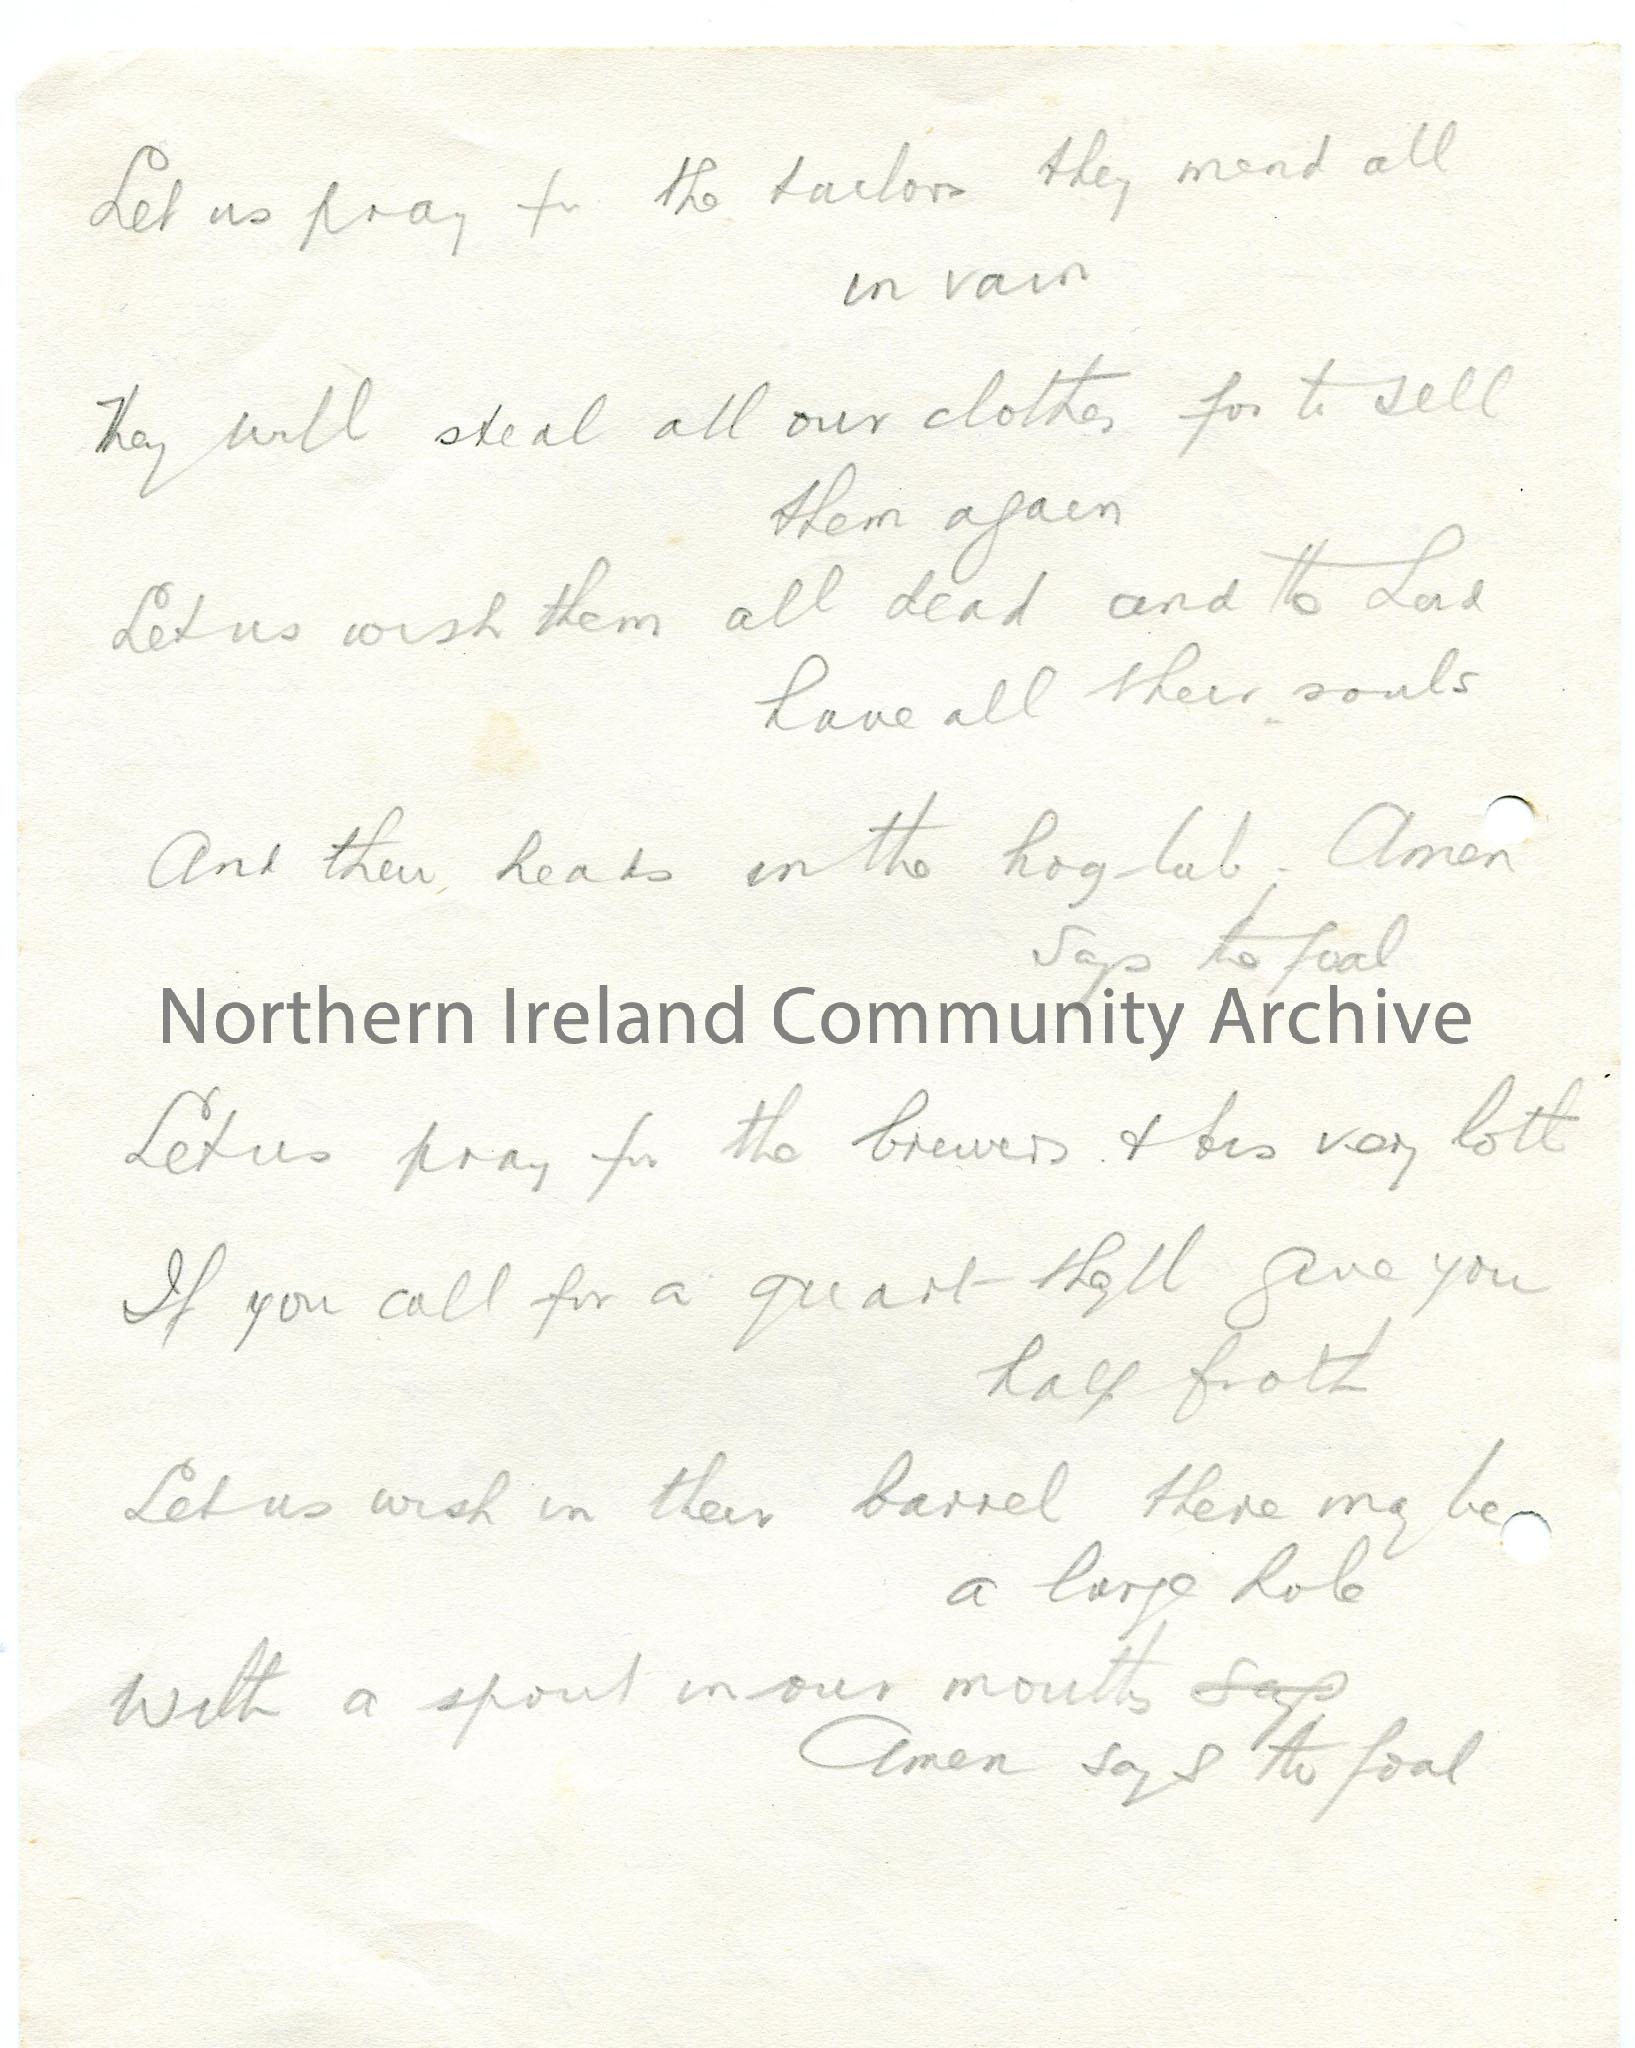 Let us pray for the tailors they mend all
in vain
They will steal all our clothes for to sell
them again
Let us wish them all dead and the Lord
have all their souls
And their heads in the hog tub, Amen
says the foal
Northern Ireland Community Archive
Let us pray for the brewers & his very loth
If you call for a quart they'll give you
half froth
Let us wish in their barrel there may be
a large hole
With a spout in our mouths says
Amen says the foal